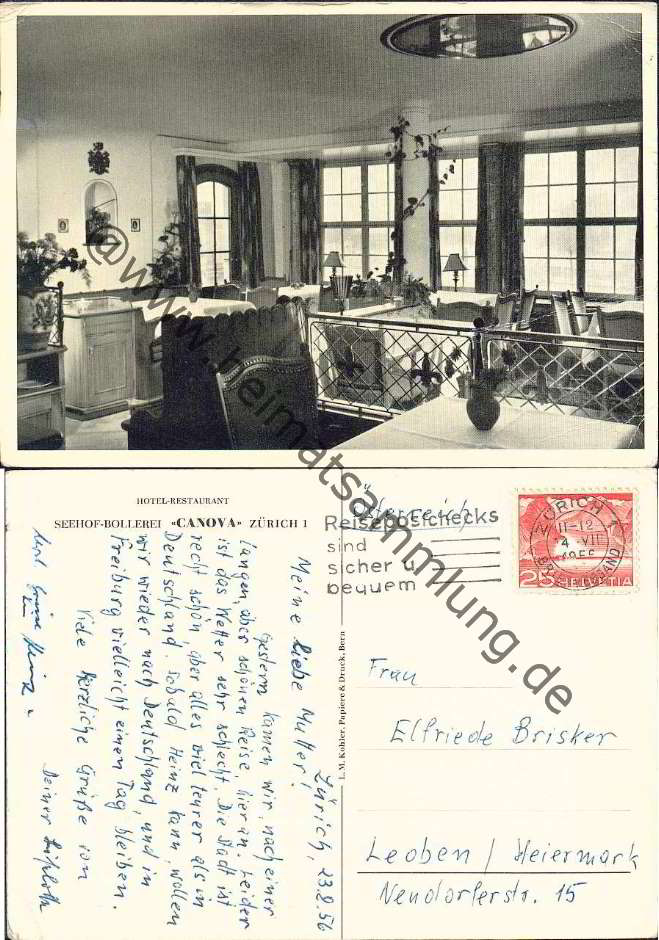 @ www.heimatsammlung.de
HOTEL-RESTAURANT
SEEHOF-BOLLEREI «CANOVA» ZÜRICH 1
Zürich, 23.8.56
Meine liebe Mutter!
Gestern kamen wir, nach einer
langen, aber schönen Reise hier an. Leider
ist das Wetter sehr schlecht. Die Stadt ist
recht schön, aber alles viel teurer als in
Deutschland. Sobald Heinz kann, wollen
wir wieder nach Deutschland, und in
Freiburg vielleicht einen Tag bleiben.
Viele herzliche Grüße von
Deiner
L. M. Kohler, Papiere & Druck, Bern
Österreich
Reisepostchecks
sind
sicher u.
bequem
ZÜRICH 1
11-12
VII
BRIEFVERSAND
25 HELVETIA
Frau
Elfriede Brisker
Leoben / Steiermark
Neudorferstr. 15